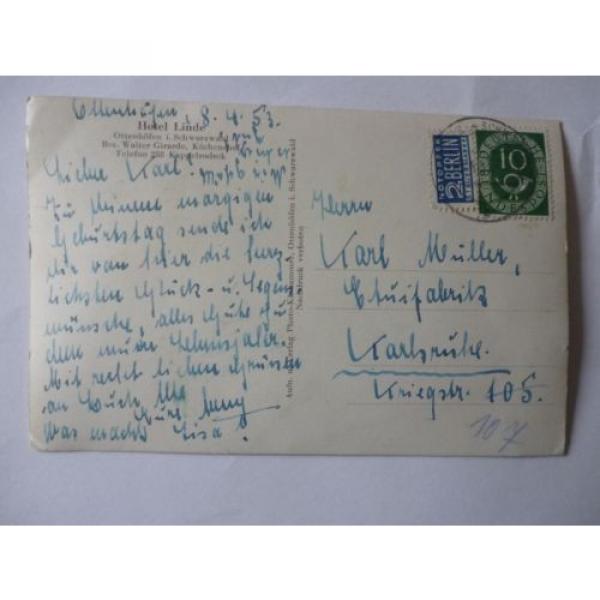 Ottenhöfen, 8.4.53.
Hotel Linde
Ottenhöfen i. Schwarzwald
Bes. Walter Girardo, Küchenchef
Telefon 288 Kappelrodeck
Karl.
Zu Deinem morgigen
Geburtstag sende ich
dir von hier die herz-
lichsten Glück- u. Segen
wünsche, alles Gute zu
neuen Lebensjahr.
Mit recht lichen Grüssen
an Euch Alle
Eure
Was macht Lisa?
Aufn. u. Verlag Photo- Ottenhöfen i. Schwarzwald
Nachdruck verboten
NOTOPFER
2 BERLIN
STEUERMARKE
DEUTSCHE BUNDESPOST
10
Herrn
Karl Müller,
Etuifabrik
Karlsruhe.
Kriegstr. 105.